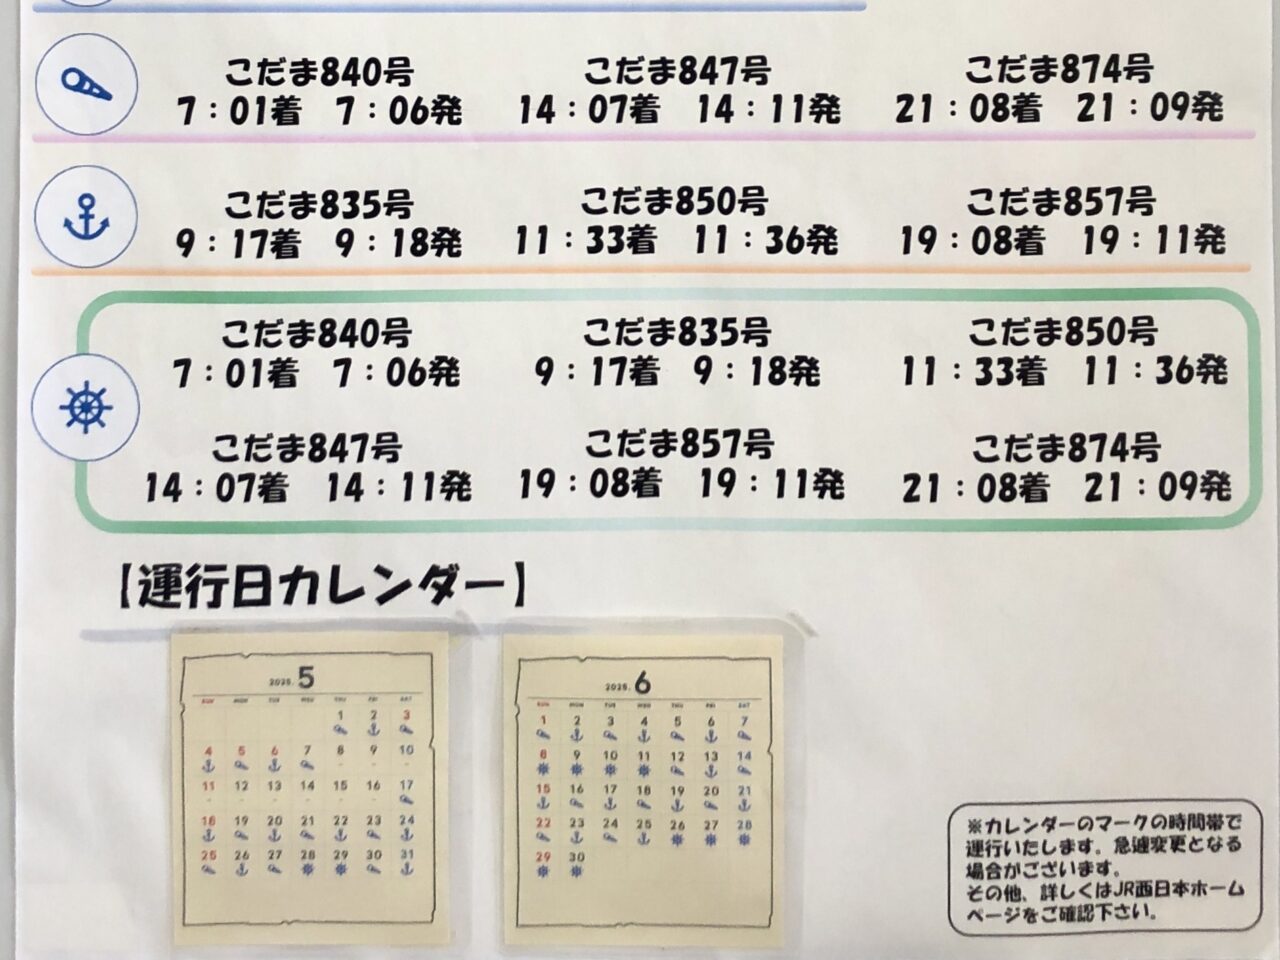 こだま840号 こだま847号 こだま874号
7：01着 7：06発 14：07着 14：11発 21：08着 21：09発
こだま835号 こだま850号 こだま857号
9：17着 9：18発 11：33着 11：36発 19：08着 19：11発
こだま840号 こだま835号 こだま850号
7：01着 7：06発 9：17着 9：18発 11：33着 11：36発
こだま847号 こだま857号 こだま874号
14：07着 14：11発 19：08着 19：11発 21：08着 21：09発
【運行日カレンダー】
2025. 5
SUN MON TUE WED THU FRI SAT
1 2 3
4 5 6 7 8 9 10
11 12 13 14 15 16 17
18 19 20 21 22 23 24
25 26 27 28 29 30 31
2025. 6
SUN MON TUE WED THU FRI SAT
1 2 3 4 5 6 7
8 9 10 11 12 13 14
15 16 17 18 19 20 21
22 23 24 25 26 27 28
29 30
※カレンダーのマークの時間帯で
運行いたします。急遽変更となる
場合がございます。
その他、詳しくはJR西日本ホーム
ページをご確認下さい。